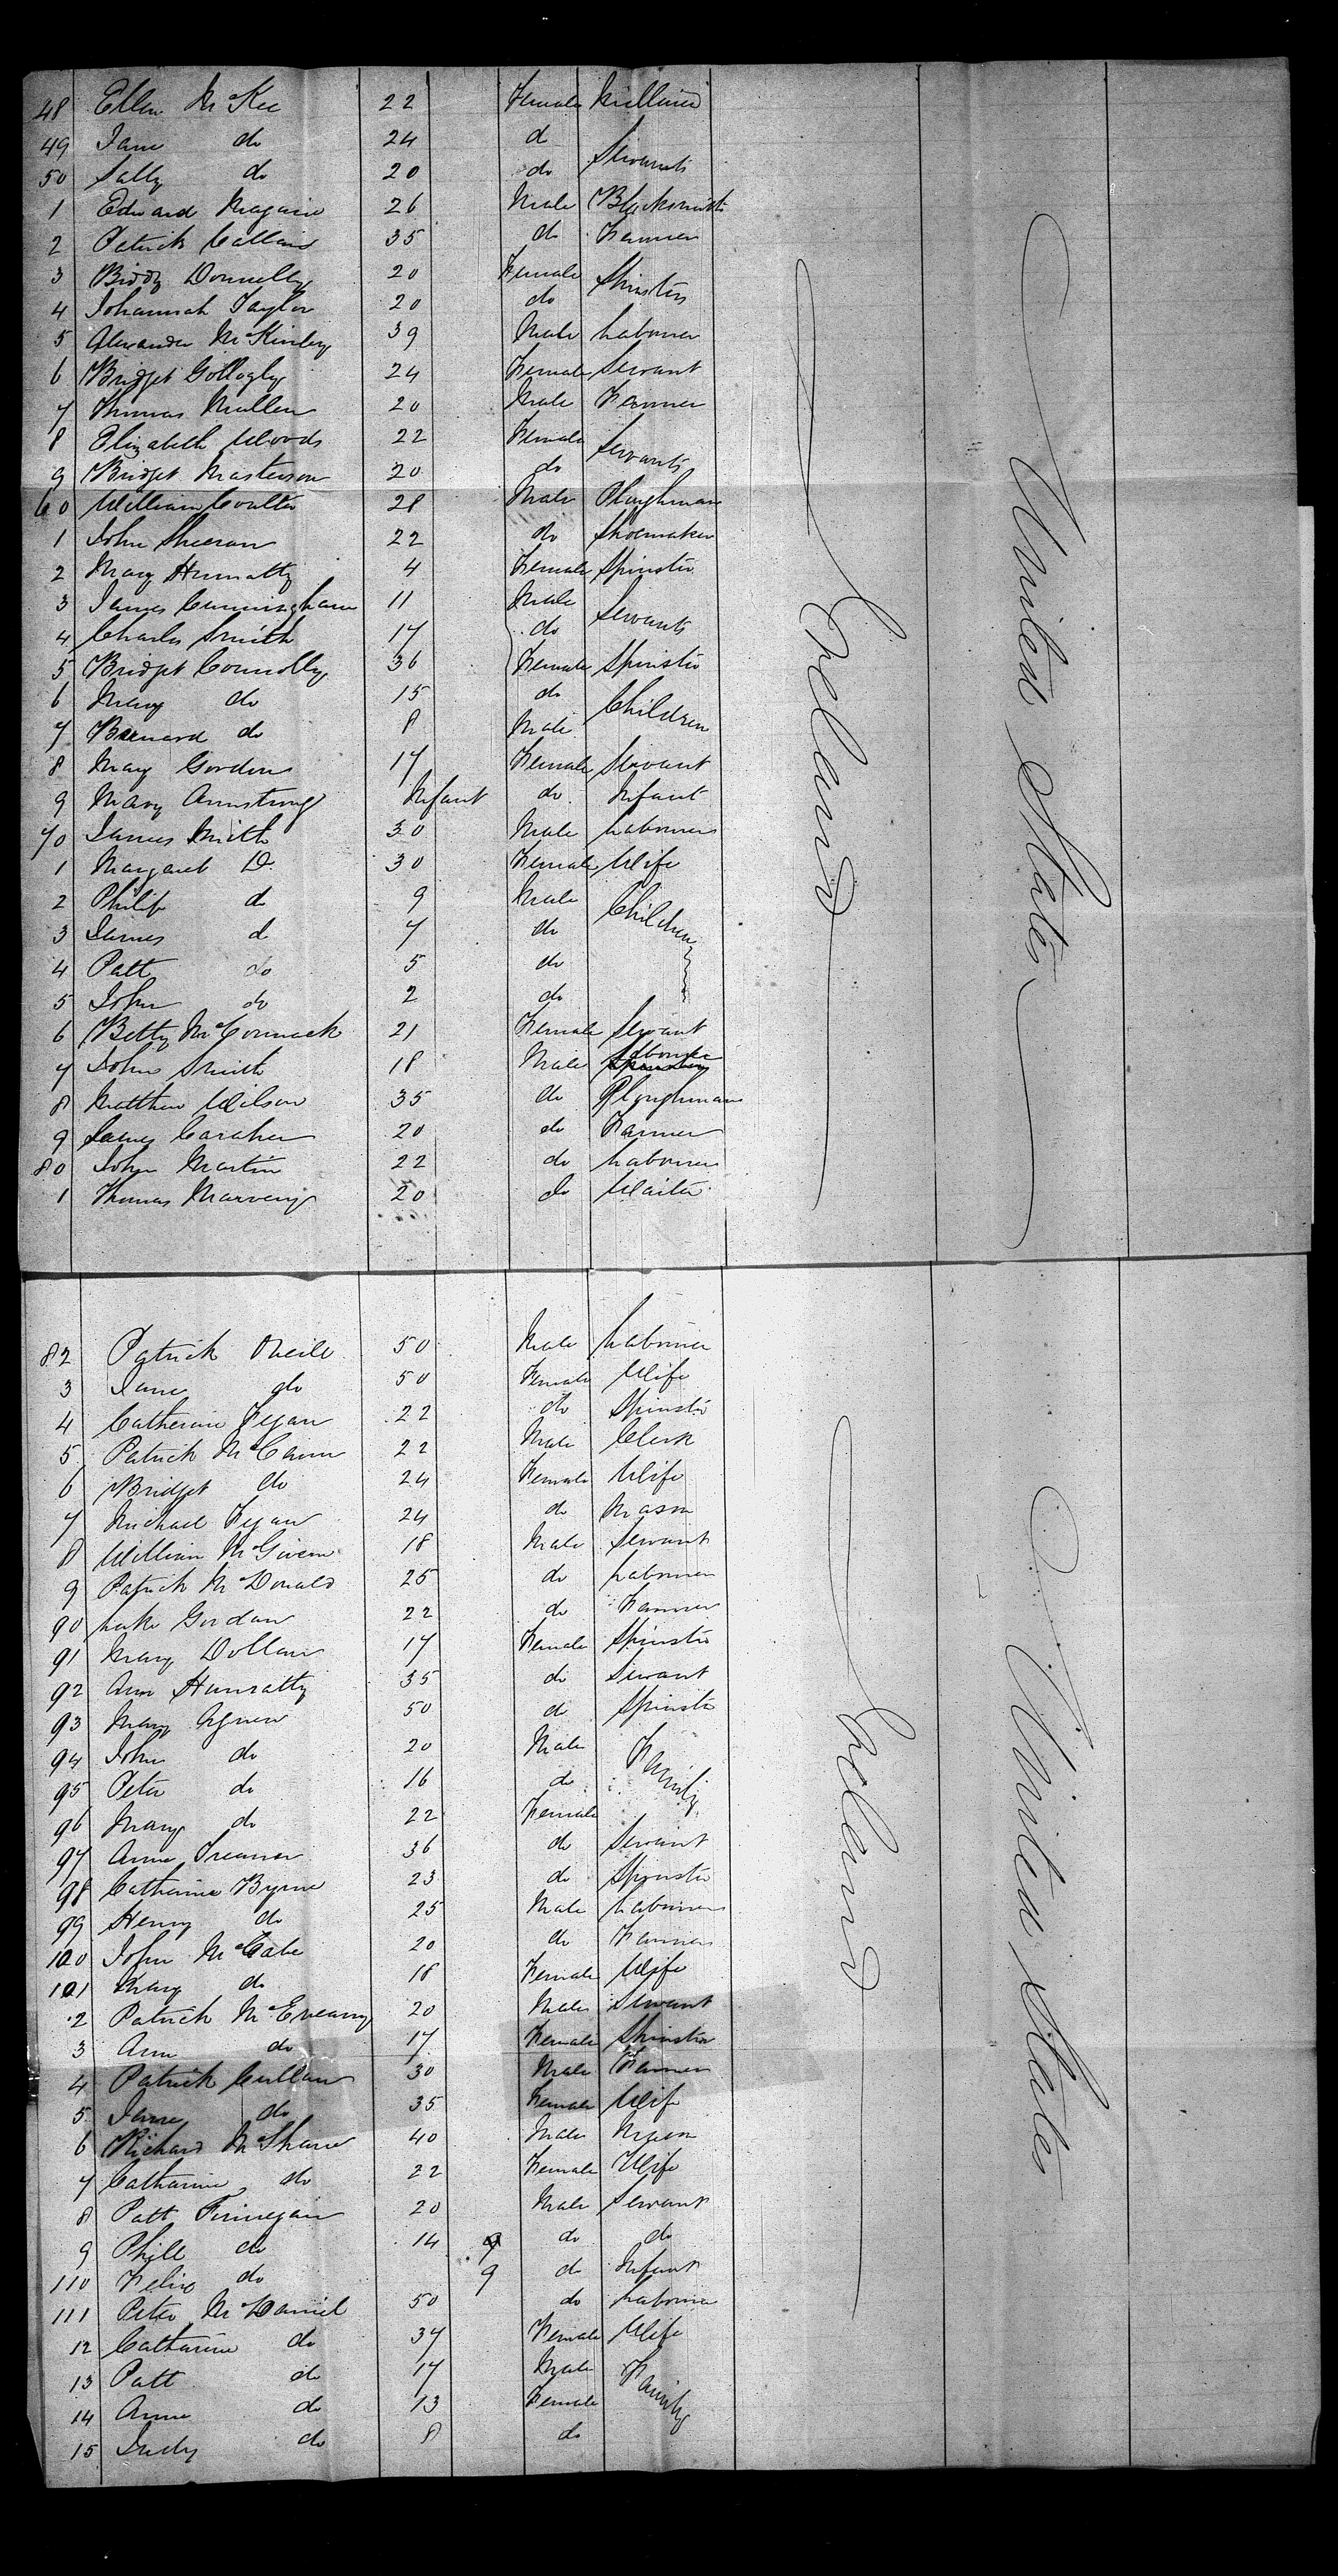 48 Ellen McKee 22 Female Milliner
49 Jane do 24 d
50 Sally do 20 do Servants
1 Edward Maguire 26 Male Blacksmith
2 Patrick Callan 35 do Farmer
3 Biddy Donnelly 20 Female Spinsters
4 Johannah Taylor 20 do
5 Alexander McKinley 39 Male Labourer
6 Bridget Gollogly 24 Female Servant
7 Thomas Mullen 20 Male Farmer
8 Elizabeth Woods 22 Female Servants
9 Bridget Masterson 20 do
60 William Coulter 28 Male Ploughman
1 John Sheeran 22 do Shoemaker
2 Mary Hunratty 4 Female Spinster
3 James Cunningham 11 Male Servants
4 Charles Smith 17 do
5 Bridget Connolly 36 Female Spinster
6 Mary do 15 do Children
7 Barnard do 8 Male
8 Mary Gordon 17 Female Servant
9 Mary Armstrong Infant do Infant
70 James Smith 30 Male Labourer
1 Margaret D. 30 Female Wife
2 Philip do 9 Male Children
3 James d 7 do
4 Patt do 5 do
5 John do 2 do
6 Betty McCormack 21 Female Servant
7 John Smith 18 Male Labourer
8 Matthew Wilson 35 do Ploughman
9 James Caraher 20 do Farmer
80 John Martin 22 do Labourer
1 Thomas Marveny 20 do Waiter
Ireland
United States
82 Patrick Oneill 50 Male Labourer
3 Jane do 50 Female Wife
4 Catherine Fegan 22 do Spinster
5 Patrick McCann 22 Male Clerk
6 Bridget do 24 Female Wife
7 Michael Fegan 24 do Mason
8 William McGivern 18 Male Servant
9 Patrick McDonald 25 do Labourer
90 Luke Gordan 22 do Farmer
91 Mary Dollan 17 Female Spinster
92 Ann Hunratty 35 do Servant
93 Mary Agnew 50 do Spinster
94 John do 20 Male Family
95 Peter do 16 do
96 Mary do 22 Female
97 Anne Treanor 36 do Servant
98 Catherine Byrne 23 do Spinster
99 Henry do 25 Male Labourer
100 John McCabe 20 do Farmer
101 Mary do 18 Female Wife
2 Patrick McEneany 20 Male Servant
3 Ann do 17 Female Spinster
4 Patrick Cullan 30 Male Farmer
5 Jane do 35 Female Wife
6 Richard McShane 40 Male Mason
7 Catharine do 22 Female Wife
8 Patt Finnegan 20 Male Servant
9 Phill do 14 do do
110 Felix do 9 do Infant
111 Peter McDaniel 50 do Labourer
12 Catharine do 37 Female Wife
13 Patt do 17 Male Family
14 Anne do 13 Female
15 Judy do 8 do
Ireland
United States